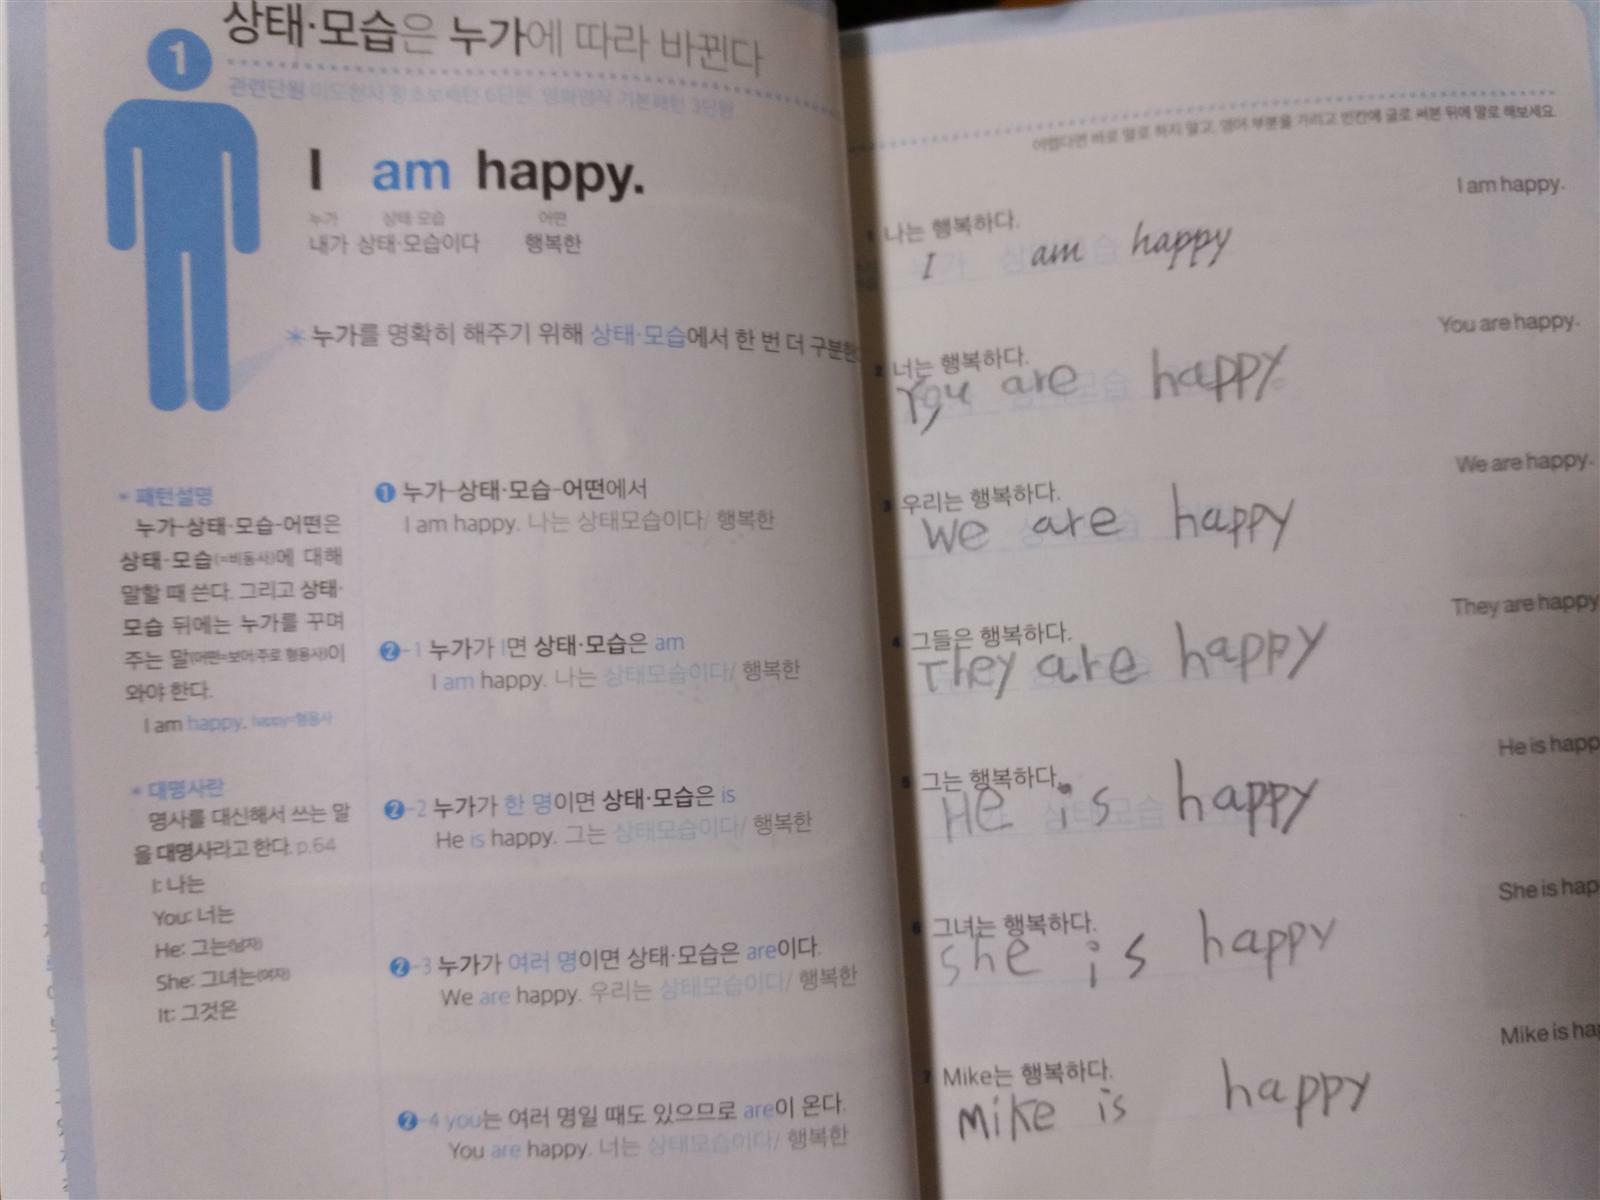 1
상태·모습은 누가에 따라 바뀐다
관련단원
I am happy.
누가 상태·모습 어떤
내가 상태·모습이다 행복한
* 누가를 명확히 해주기 위해 상태·모습에서 한 번 더 구분한
* 패턴설명
누가-상태·모습-어떤은
상태·모습(=비동사)에 대해
말할 때 쓴다. 그리고 상태·
모습 뒤에는 누가를 꾸며
주는 말(어떤=보어:주로 형용사)이
와야 한다.
I am happy. happy=형용사
* 대명사란
명사를 대신해서 쓰는 말
을 대명사라고 한다. p.64
I: 나는
You: 너는
He: 그는(남자)
She: 그녀는(여자)
It: 그것은
1 누가-상태·모습-어떤에서
I am happy. 나는 상태모습이다/ 행복한
2-1 누가가 I면 상태·모습은 am
I am happy. 나는 상태모습이다/ 행복한
2-2 누가가 한 명이면 상태·모습은 is
He is happy. 그는 상태모습이다/ 행복한
2-3 누가가 여러 명이면 상태·모습은 are이다.
We are happy. 우리는 상태모습이다/ 행복한
2-4 you는 여러 명일 때도 있으므로 are이 온다.
You are happy. 너는 상태모습이다/ 행복한
어렵다면 바로 말로 하지 말고, 영어 부분을 가리고 빈칸에 글로 써본 뒤에 말로 해보세요.
I am happy.
1 나는 행복하다.
I am happy
You are happy.
2 너는 행복하다.
You are happy
We are happy.
3 우리는 행복하다.
We are happy
They are happy
4 그들은 행복하다.
They are happy
He is happ
5 그는 행복하다.
He is happy
She is hap
6 그녀는 행복하다.
She is happy
Mike is ha
7 Mike는 행복하다.
Mike is happy